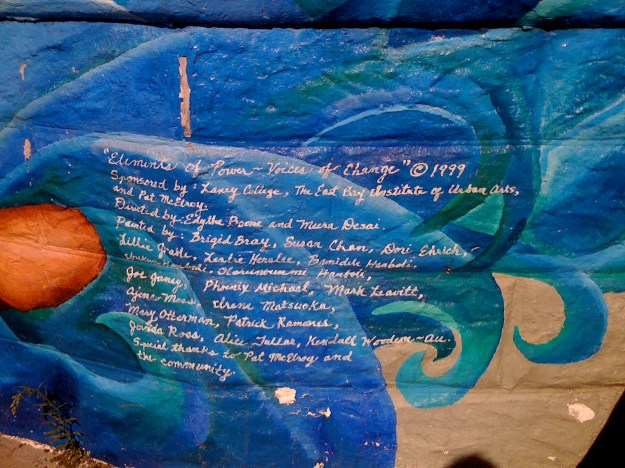 "Elements of Power ~ Voices of Change" © 1999
Sponsored by: Laney College, The East Bay Institute of Urban Arts,
and Pat McElroy.
Directed by: Edythe Boone and Meera Desai.
Painted by: Brigid Bray, Susan Cham, Dori Ehrlich,
Lillie Leslie Bamidele Hanboli,
Hanboli,
Joe Janey, Phoenix Michael, Mark Leavitt,
Moss, Irene Matsuoka,
Mary Otterman, Patrick Ramones,
Ross, Alice Kendall Woodum-Au.
Special thanks to Pat McElroy and
the community.